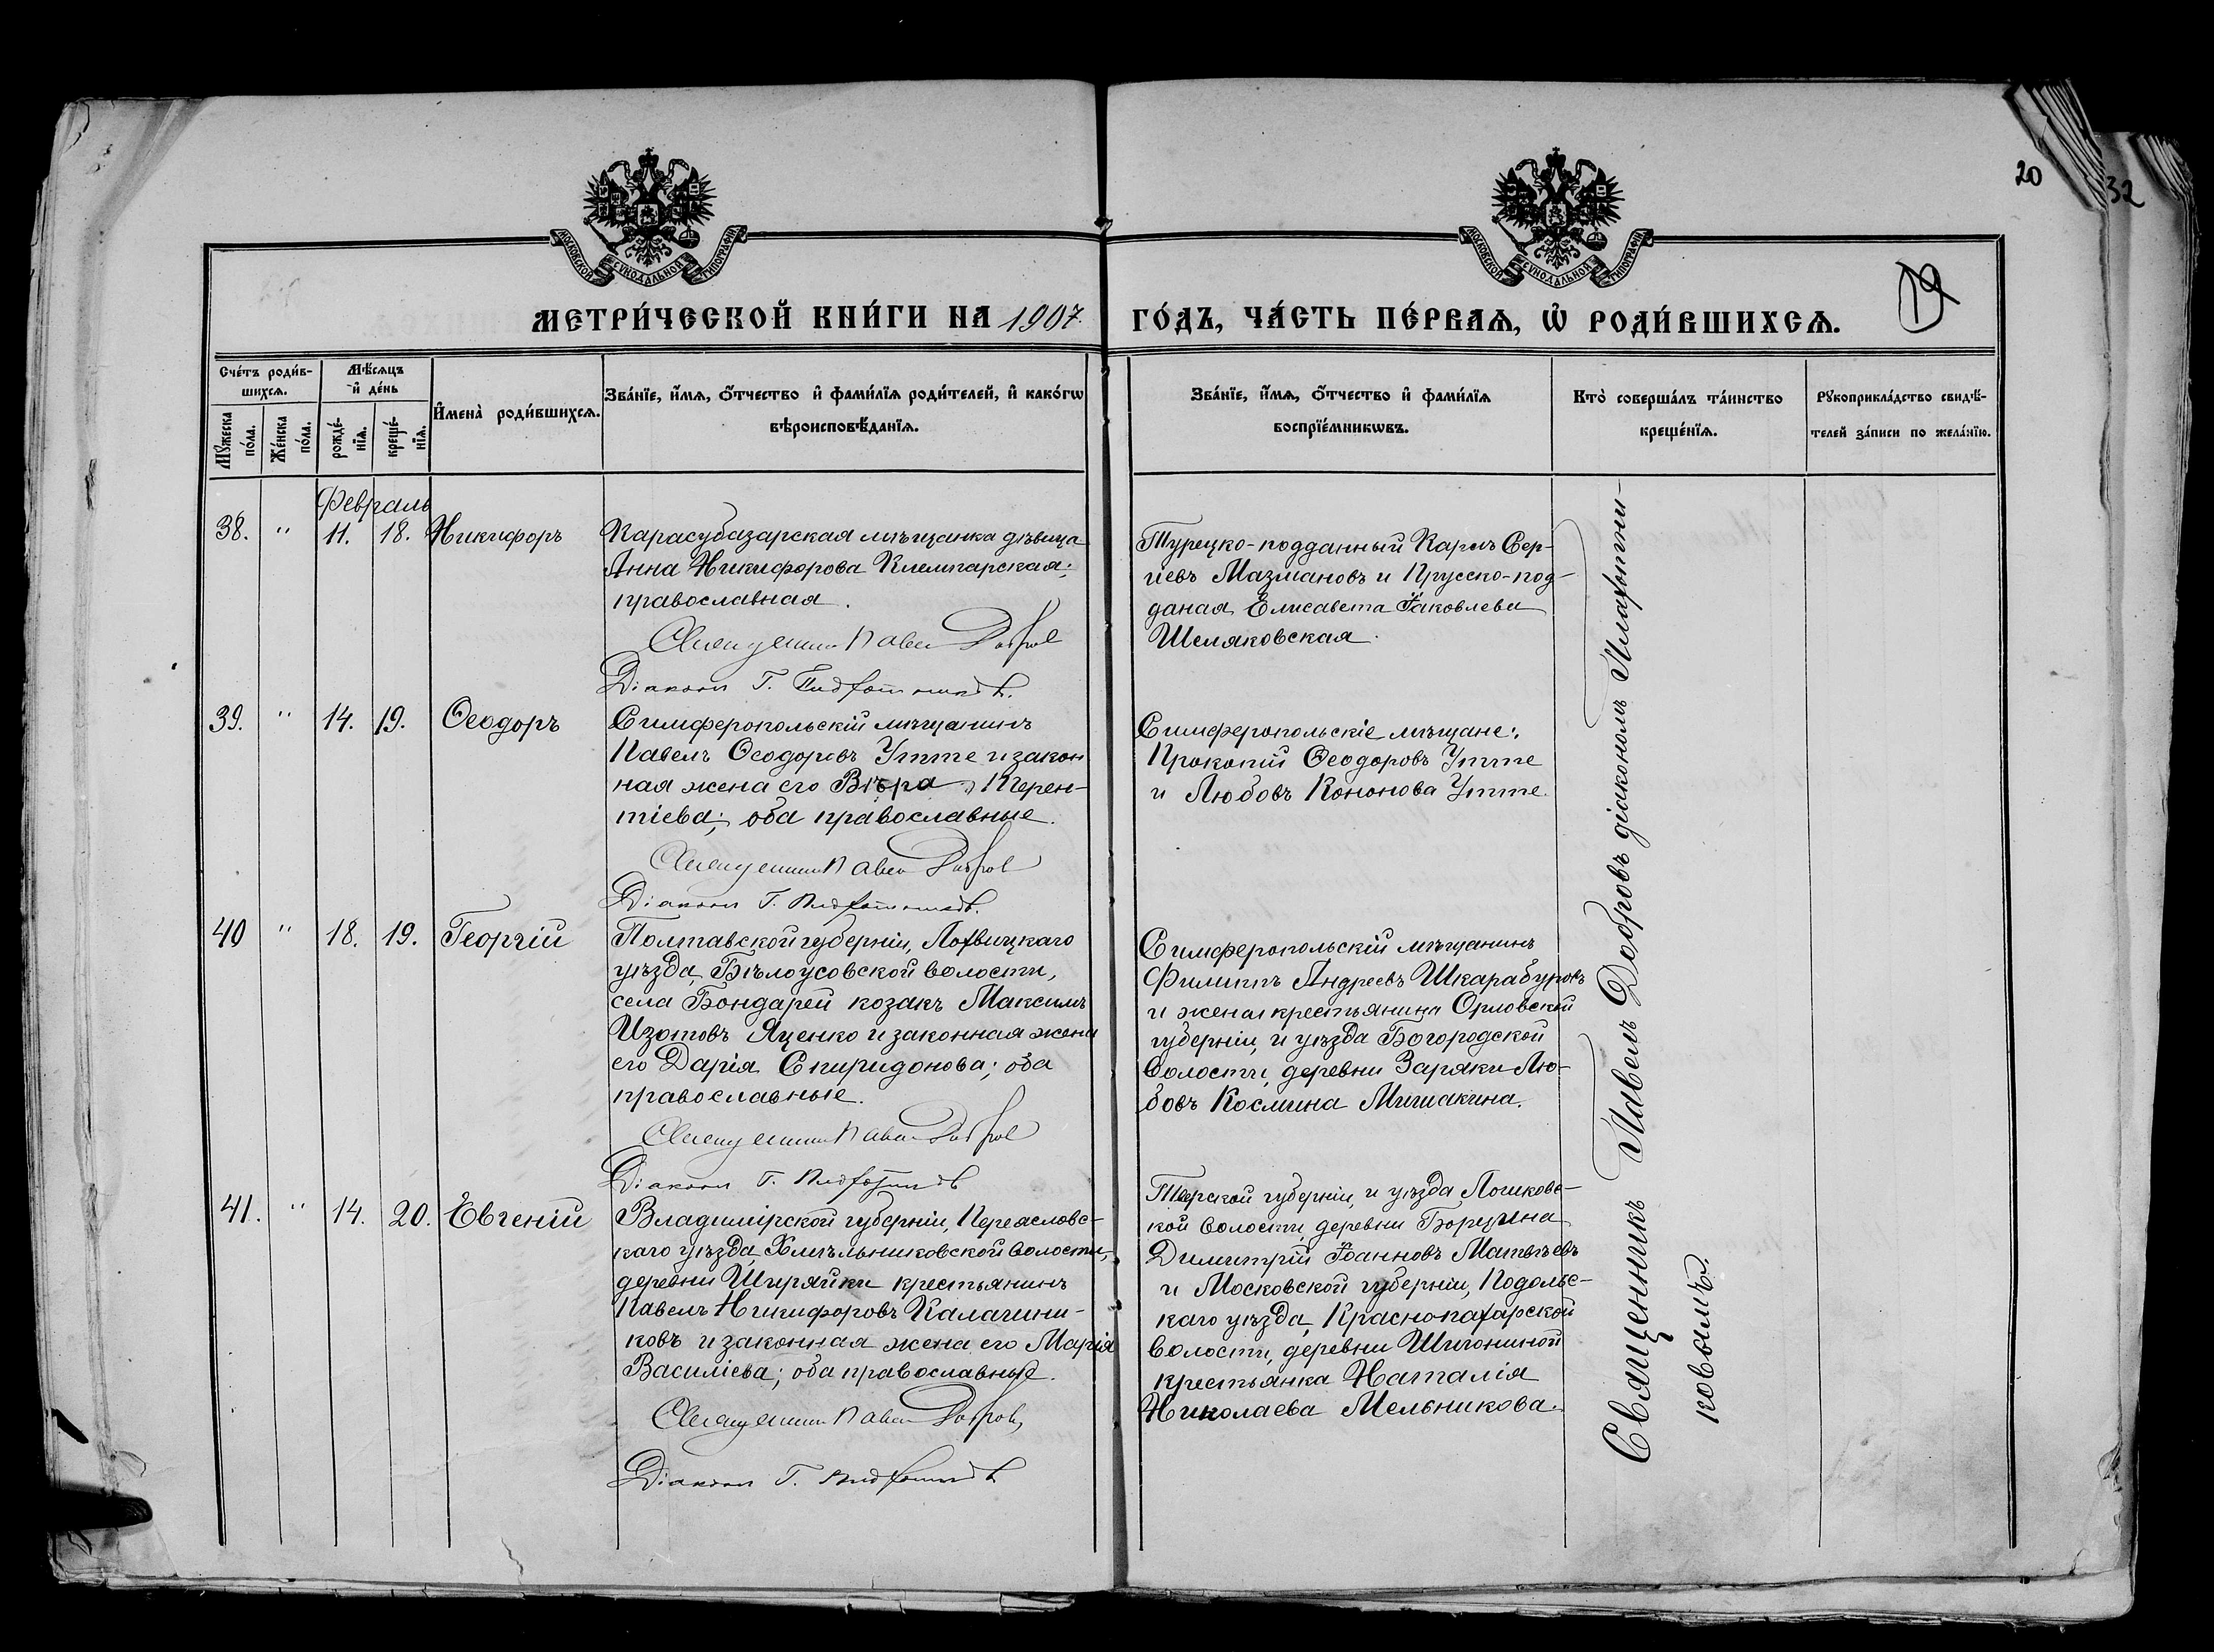 20
32
МОСКОВСКОЙ СѴНОДАЛЬНОЙ ТИПОГРАФІИ
МОСКОВСКОЙ СѴНОДАЛЬНОЙ ТИПОГРАФІИ
19
МЕТРИ́ЧЕСКОЙ КНИ́ГИ НА 1907. ГО́ДЪ, ЧА́СТЬ ПЕ́РВАѦ, Ѡ҆ РОДИ́ВШИХСѦ.
Сче́тъ роди́в-
шихсѧ.
Мꙋ́жеска по́ла.
Же́нска по́ла.
Мѣ́сѧцъ
и҆ де́нь
рожде́-
нїѧ.
креще́-
нїѧ.
И҆мена̀ роди́вшихсѧ.
Зва́нїе, и҆́мѧ, ѻ҆́тчество и҆ фами́лїѧ роди́телей, и҆ како́гѡ
вѣроисповѣ́данїѧ.
Зва́нїе, и҆́мѧ, ѻ҆́тчество и҆ фами́лїѧ
воспрїе́мникѡвъ.
Кто̀ соверша́лъ та́инство
креще́нїѧ.
Рꙋкоприкла́дство свидѣ́-
телей за́писи по жела́нїю.
Февраль
38. " 11. 18. Никифоръ
Карасубазарская мѣщанка дѣвица
Анна Никифорова Клемпарская;
православная.
Священникъ Павелъ Добров
Діаконъ Г.
Турецко-подданный Карпъ Сер-
гіевъ Мазмановъ и Прусско-под-
даная Елисавета Іаковлева
Шеляковская.
39. " 14. 19. Ѳеодоръ
Симферопольскій мѣщанинъ
Павелъ Ѳеодоровъ Утте и закон
ная жена его Вѣра Терен-
тіева; оба православные.
Священникъ Павелъ Добров
Діаконъ Г.
Симферопольскіе мѣщане:
Прокопій Ѳеодоровъ Утте
и Любовь Кононова Утте.
40 " 18. 19. Георгій
Полтавской губерніи, Лохвицкаго
уѣзда, Бѣлоусовской волости,
села Бондарей козакъ Максимъ
Изотовъ Яценко и законная жена
его Дарія Спиридонова; оба
православные.
Священникъ Павелъ Добров
Діаконъ Г.
Симферопольскій мѣщанинъ
Филиппъ Андреевъ Шкарабуровъ
и жена крестьянина Орловской
губерніи, и уѣзда Богородской
волости, деревни Заряки Лю-
бовь Космина Мишакина.
41. " 14. 20. Евгеній
Владимірской губерніи, Переясловс-
каго уѣзда, Хмѣльниковской волости,
деревни Ширяйки крестьянинъ
Павелъ Никифоровъ Калачни-
ковъ и законная жена его Марія
Василіева; оба православные.
Священникъ Павелъ Добров
Діаконъ Г.
Тверской губерніи, и уѣзда, Логиковс-
кой волости, деревни
Димитрій Іоанновъ Матвѣевъ
и Московской губерніи, Подольс-
каго уѣзда, Краснопахарской
волости, деревни Шигониной
крестьянка Наталія
Николаева Мельникова.
Священникъ Павелъ Добровъ діакономъ Плафотни-
ковымъ.